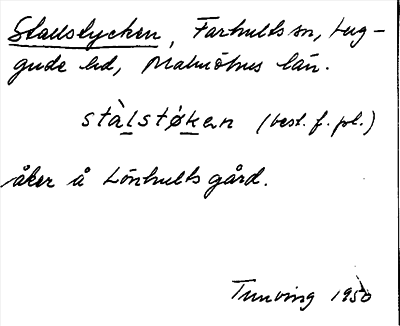 Stallstycken, Farhults sn, Lug-
gude hd, Malmöhus län.
stàlstø̀kan (best. f. pl.)
åker å Lönhults gård.
Tunving 1950